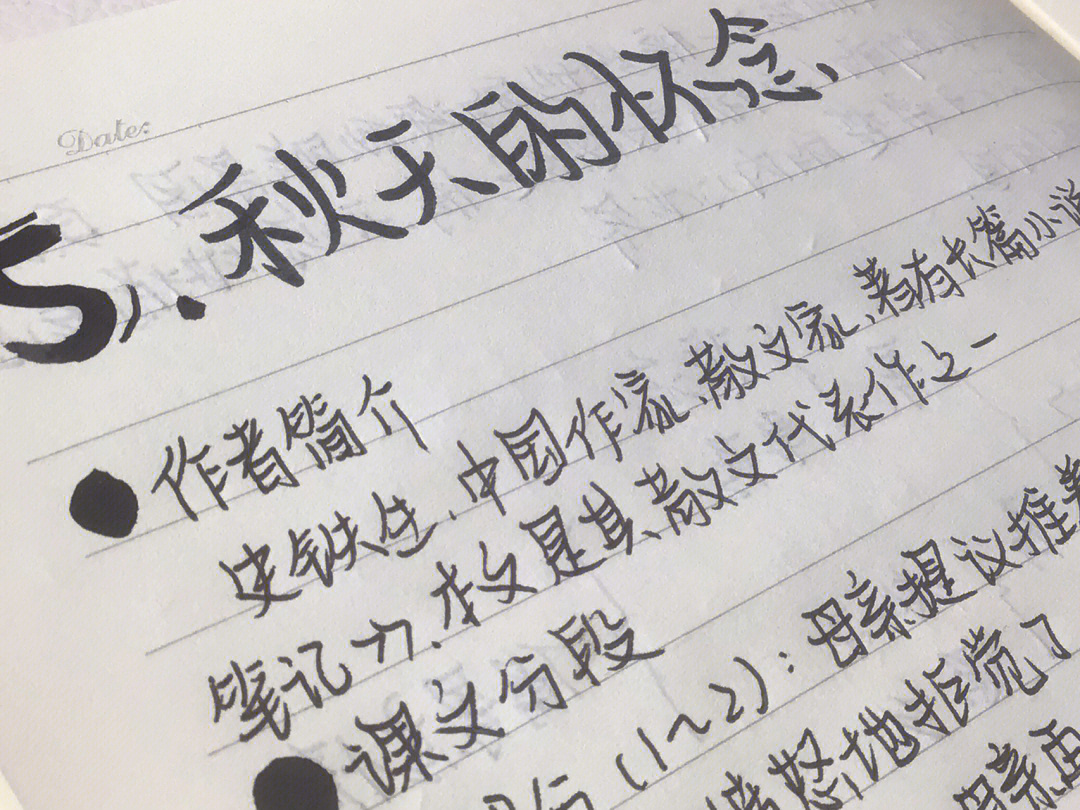 Date:
5. 秋天的怀念
作者简介
史铁生、中国作家、散文家、著有长篇小说
笔记》、本文是其散文代表作之一
课文分段
(1~2):母亲提议推着
愤怒地拒绝了
母亲再